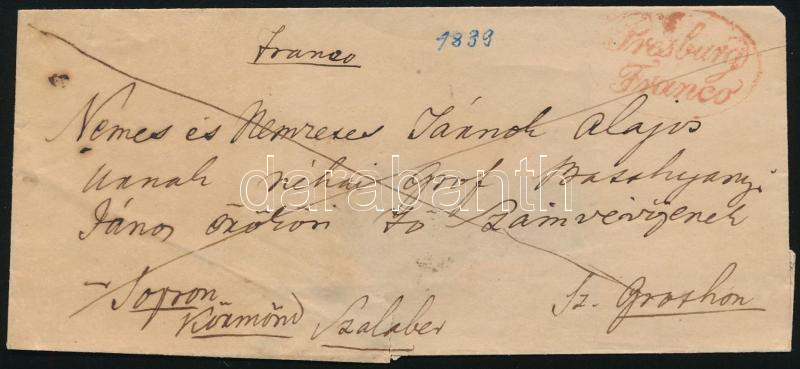 Franco
1839
Presburg
Franco
Nemes és Nemzetes Jánnok Alajos
Urnak néhai Gróf Batthyanyi
János örökösi Fő Számvevőjének
Sopron
Körmönd Szalaber
Sz. Grothon
darabanth